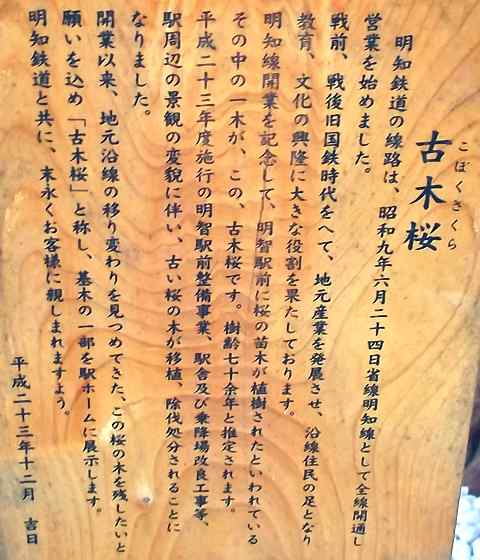 こぼくざくら
古木桜
明知鉄道の線路は、昭和九年六月二十四日省線明知線として全線開通し
営業を始めました。
戦前、戦後旧国鉄時代をへて、地元産業を発展させ、沿線住民の足となり
教育、文化の興隆に大きな役割を果たしております。
明知線開業を記念して、明智駅前に桜の苗木が植樹されたといわれている
その中の一木が、この、古木桜です。樹齢七十余年と推定されます。
平成二十三年度施行の明智駅前整備事業、駅舎及び乗降場改良工事等、
駅周辺の景観の変貌に伴い、古い桜の木が移植、除伐処分されることに
なりました。
開業以来、地元沿線の移り変わりを見つめてきた、この桜の木を残したいと
願いを込め「古木桜」と称し、基木の一部を駅ホームに展示します。
明知鉄道と共に、末永くお客様に親しまれますよう。
平成二十三年十二月　吉日